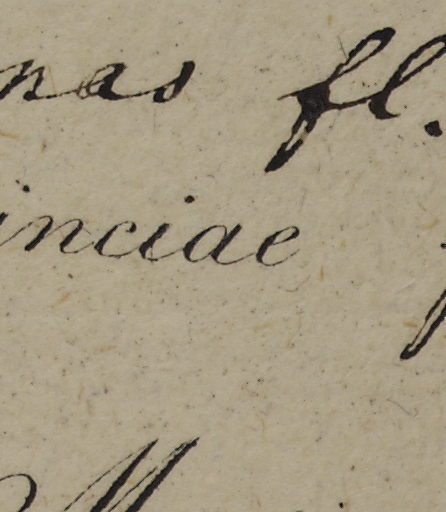 nas fl.
inciae
M